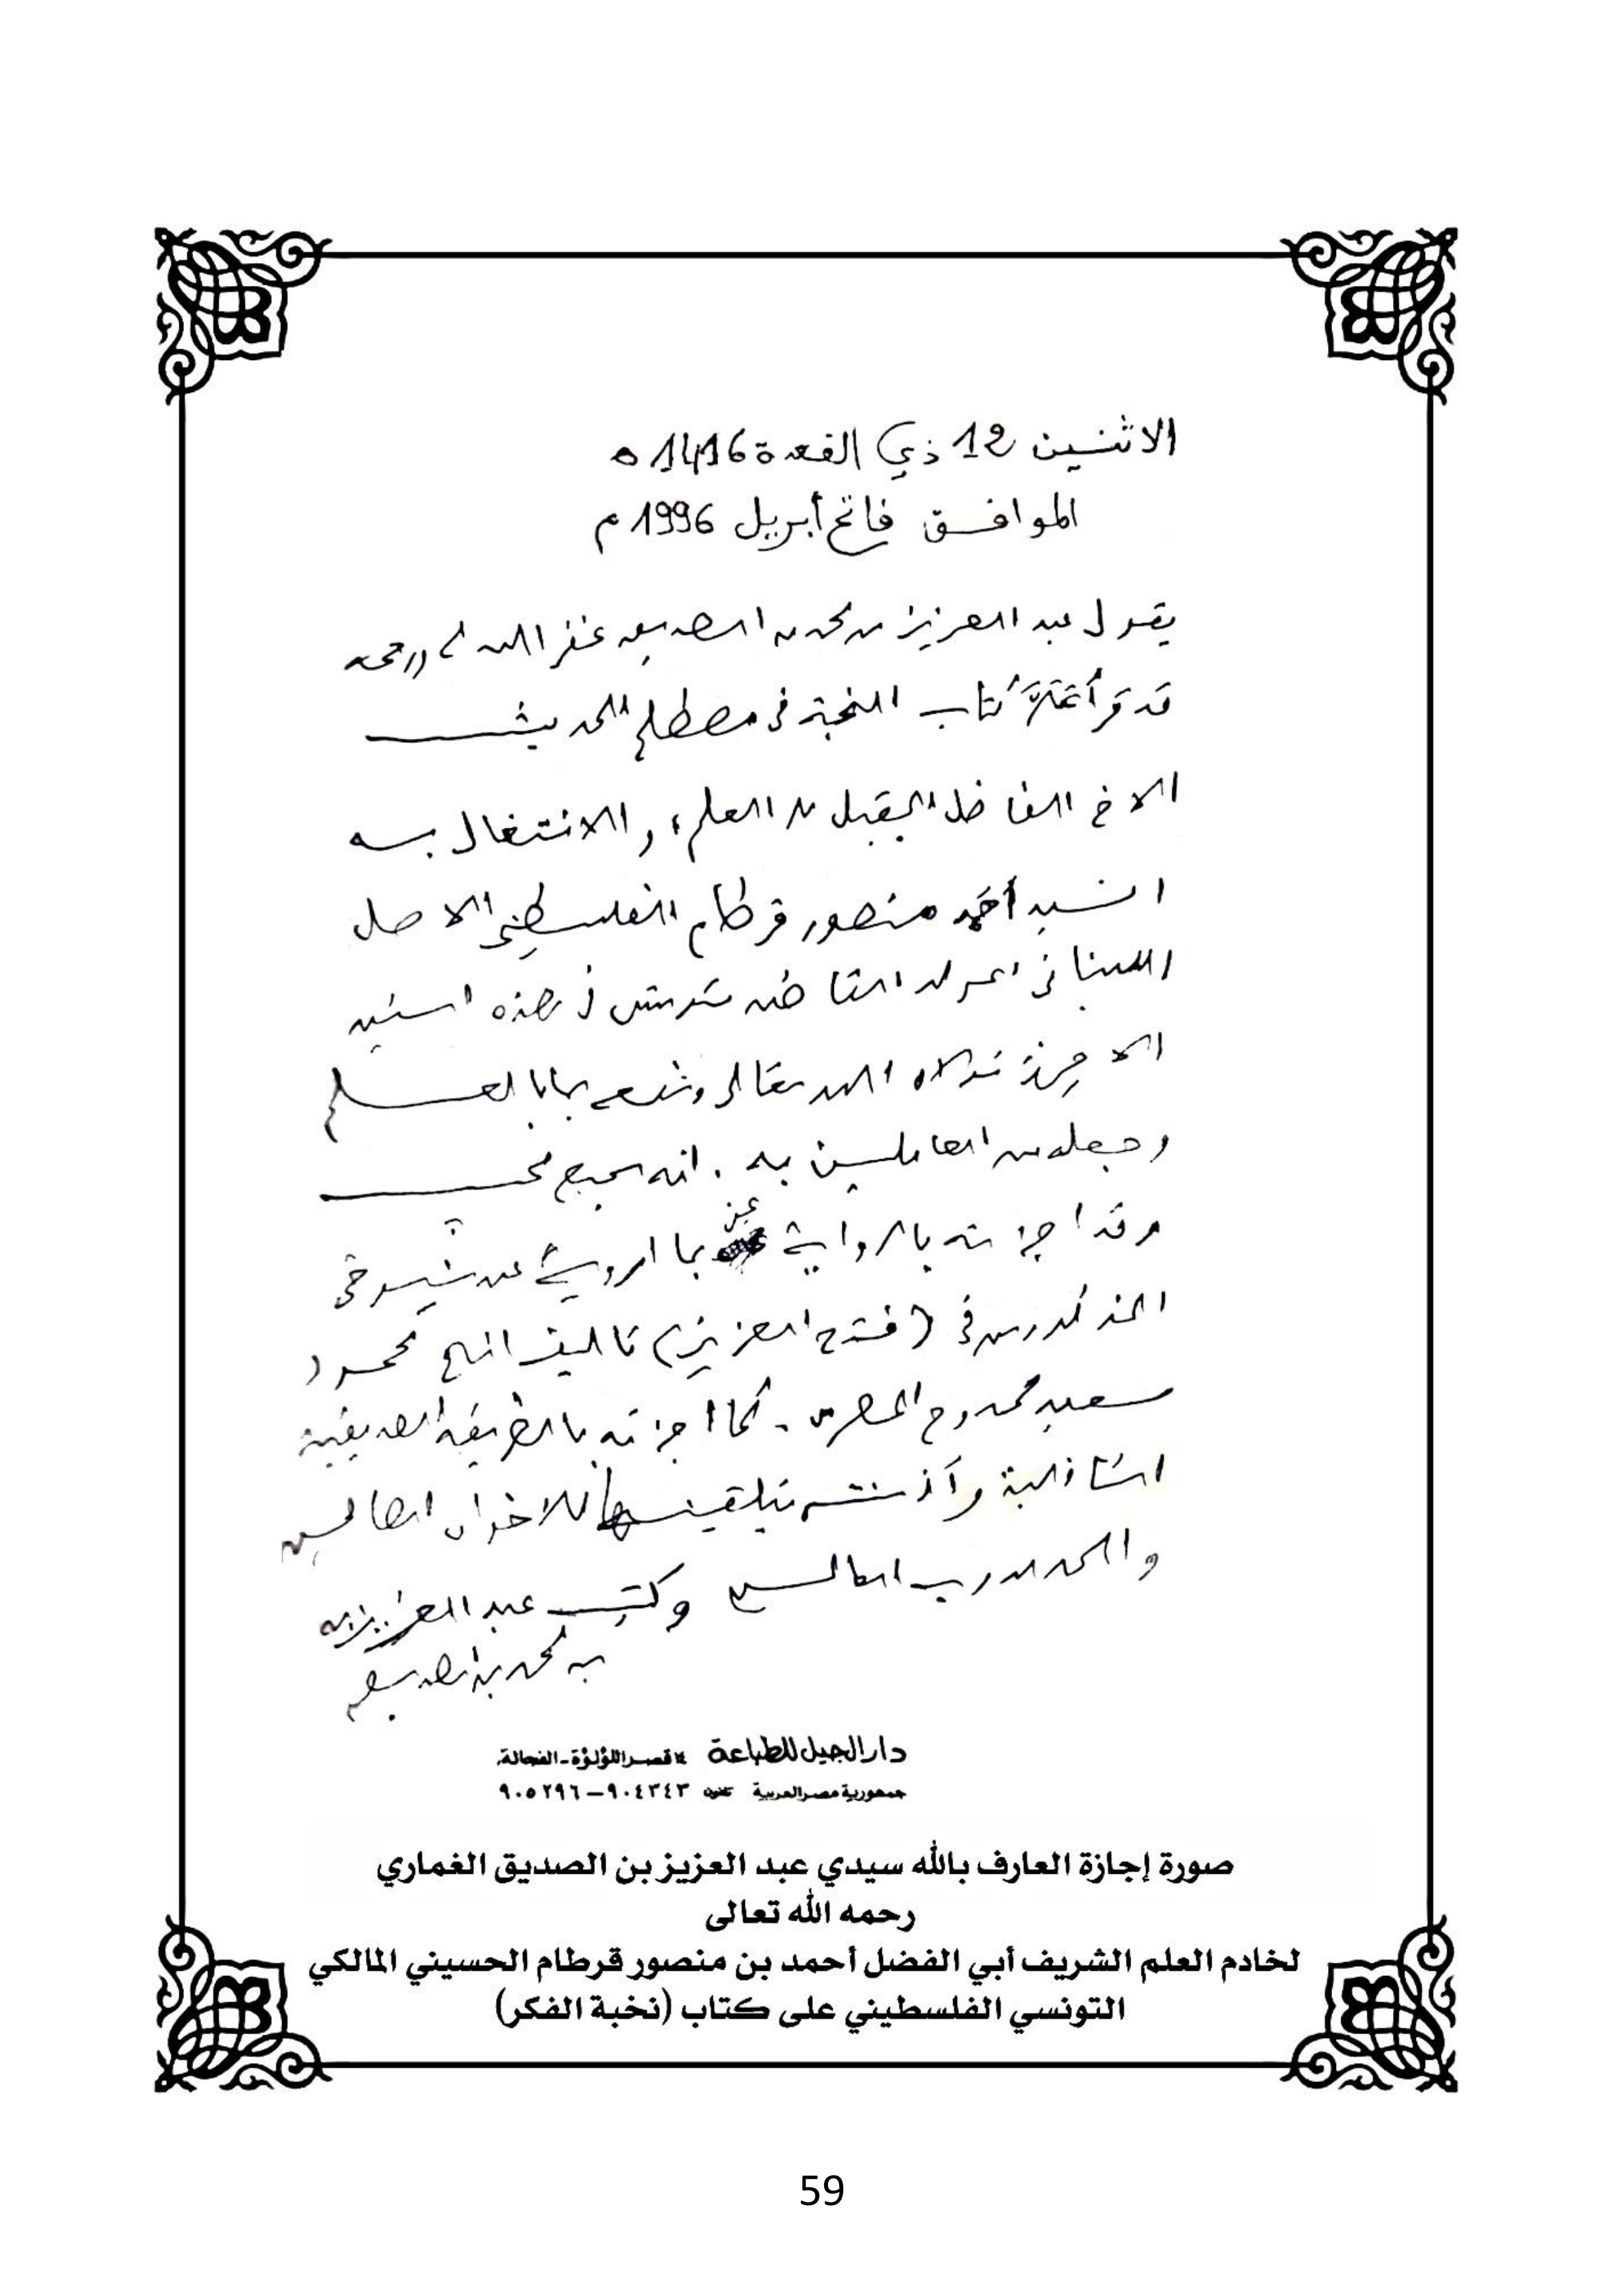 الاثنين 12 ذي القعدة 1416 ه
الموافق فاتح أبريل 1996 م
يقول عبد العزيز بن محمد بن الصديق غفر الله له ورحمه
قد قرأ كتاب النخبة في مصطلح الحديث
الاخ الفاضل المقبل على العلم، والاشتغال به
السيد أحمد منصور قرطام الفلسطيني الاصل
اللبناني المولد القاطن بتونس في هذه السنين
الاخيرة تولاه الله تعالى بالعلم
وجعله من العاملين به. انه سميع مجيب
وقد اجزته بالرواية عني بما ارويه عن شيوخي
المذكورين في (فتح العزيز) تاليف محمود
سعيد ممدوح المصري. كما اجزته بالطريقة الصديقية
الشاذلية وأذنته بتلقينها للاخوان الطالبين
والحمد لله رب العالمين وكتب عبد العزيز
بن محمد بن الصديق
دار الجيل للطباعة ١٤ قصر اللؤلؤة - الفجالة
جمهورية مصر العربية تليفون ٩٠٤٣٤٣ – ٩٠٥٢٩٦
صورة إجازة العارف بالله سيدي عبد العزيز بن الصديق الغماري
رحمه الله تعالى
لخادم العلم الشريف أبي الفضل أحمد بن منصور قرطام الحسيني المالكي
التونسي الفلسطيني على كتاب (نخبة الفكر)
59